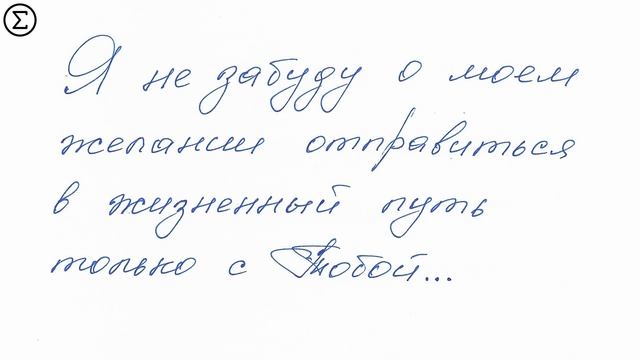 Σ
Я не забуду о моем
желании отправиться
в жизненный путь
только с Тобой...